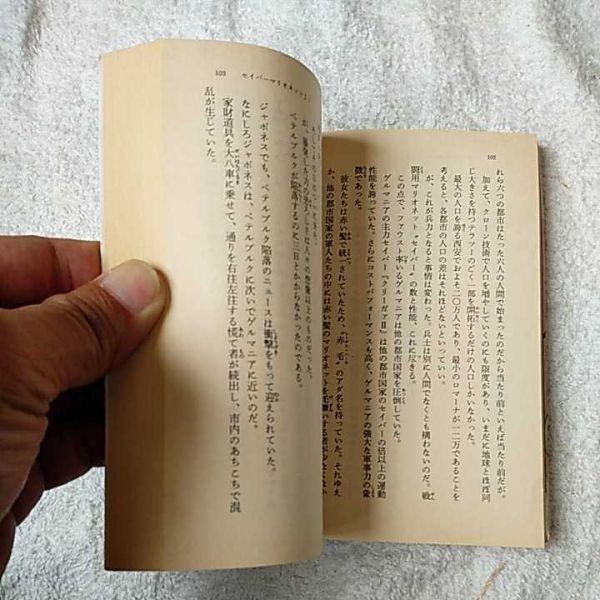 102
れら六つの都市はたった六人の人間で始まったのだから当り前といえば当り前だが。
加えて、クローン技術で人口を増やしていくのにも限度があり、いまだに地球とほぼ同
じ大きさを持つテラツーのごく一部を開拓するだけの人口しかいなかった。
最大の人口を誇る西安でおよそ二〇万人であり、最小のロマーナが一二万であることを
考えると、各都市の人口の差はそれほどないといっていい。
が、これが兵力となると事情は変わった。兵士は別に人間でなくとも構わないのだ。戦
闘用マリオネット・セイバーの数と性能、これに尽きる。
この点で、ファウスト率いるゲルマニアは他の都市国家を圧倒していた。
ゲルマニアの主力セイバー『クリーガァⅡ』は他の都市国家のセイバーの倍以上の運動
性能を誇っていた。さらにコストパフォーマンスも高く、ゲルマニアの強大な軍事力の象
徴であった。
彼女たちは赤い髪で統一されていたため、“赤毛”のアダ名を持っていた。それゆえ
か、他の都市国家の軍人たちの中には赤い髪のマリオネットを毛嫌いする者が少なくなか
103 セイバーマリオネットJ
ペテルブルクが陥落するのに三日とかからなかったのである。
ジャポネスでも、ペテルブルク陥落のニュースは衝撃をもって迎えられていた。
なにしろジャポネスは、ペテルブルクに次いでゲルマニアに近いのだ。
家財道具を大八車に乗せて、通りを右往左往する慌て者が続出し、市内のあちこちで混
乱が生じていた。